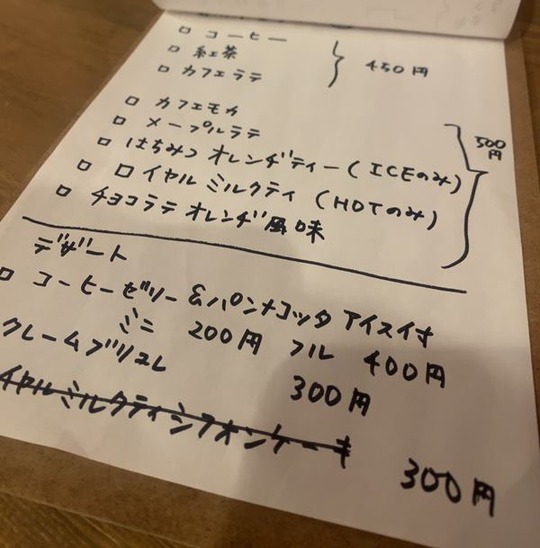 □ コーヒー
□ 紅茶
□ カフェラテ
450円
□ カフェモカ
□ メープルラテ
□ はちみつ オレンヂティー(ICEのみ)
□ ロイヤル ミルクティ (HOTのみ)
□ チョコラテ オレンヂ風味
500円
デザート
□ コーヒーゼリー&パンナコッタ アイス付
ミニ 200円 フル 400円
クレームブリュレ 300円
イヤルミルクティシフォンケーキ 300円